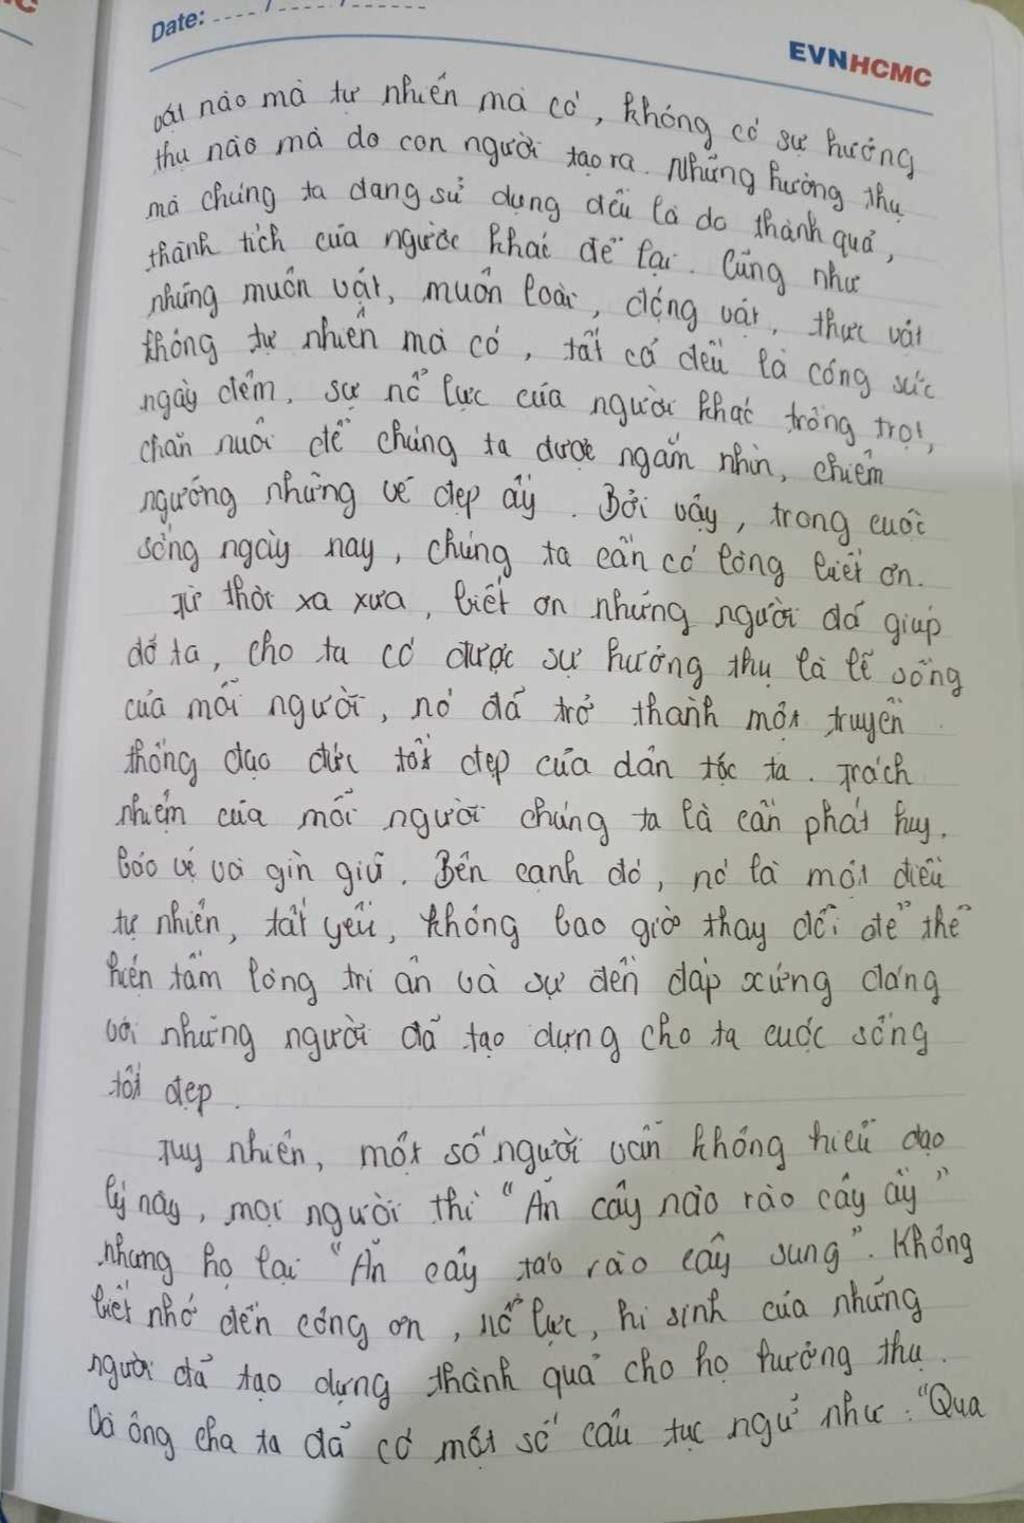 Date: .... / ..... / ......
EVNHCMC
vật nào mà tự nhiên mà có, không có sự hưởng
thụ nào mà do con người tạo ra. Những hưởng thụ
mà chúng ta đang sử dụng đều là do thành quả,
thành tích của người khác để lại. Cũng như
những muôn vật, muôn loài, động vật, thực vật
không tự nhiên mà có, tất cả đều là công sức
ngày đêm, sự nổ lực của người khác trồng trọt,
chăn nuôi để chúng ta được ngắm nhìn, chiêm
ngưỡng những vẻ đẹp ấy. Bởi vậy, trong cuộc
sống ngày nay, chúng ta cần có lòng biết ơn.
Từ thời xa xưa, biết ơn những người đã giúp
đỡ ta, cho ta có được sự hưởng thụ là lẽ sống
của mỗi người, nó đã trở thành một truyền
thống đạo đức tốt đẹp của dân tộc ta. Trách
nhiệm của mỗi người chúng ta là cần phát huy,
bảo vệ và gìn giữ. Bên cạnh đó, nó là một điều
tự nhiên, tất yếu, không bao giờ thay đổi để thể
hiện tấm lòng tri ân và sự đền đáp xứng đáng
với những người đã tạo dựng cho ta cuộc sống
tốt đẹp.
Tuy nhiên, một số người vẫn không hiểu đạo
lý này, mọi người thì "Ăn cây nào rào cây ấy"
nhưng họ lại "Ăn cây táo rào cây sung". Không
biết nhớ đến công ơn, nổ lực, hi sinh của những
người đã tạo dựng thành quả cho họ hưởng thụ.
Và ông cha ta đã có một số câu tục ngữ như: "Qua